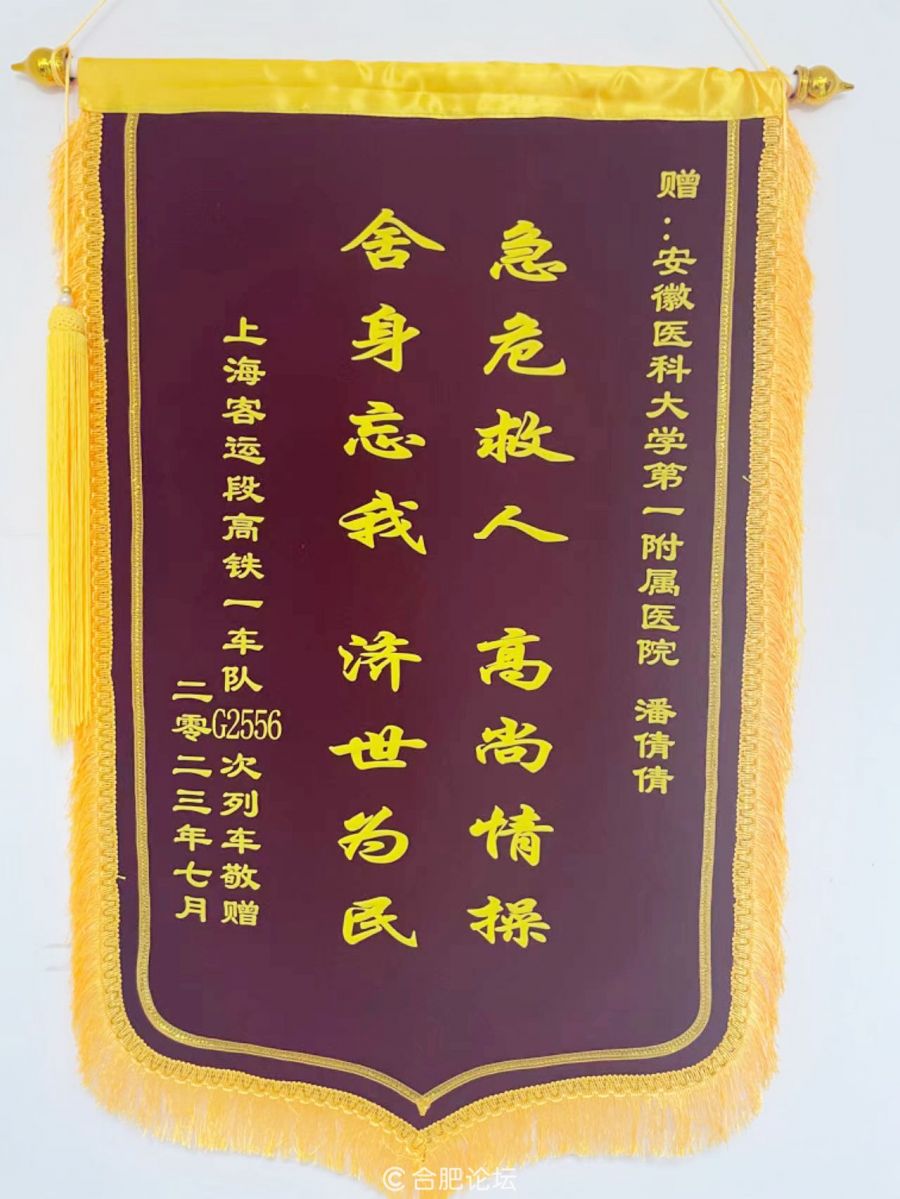 赠：安徽医科大学第一附属医院 潘倩倩
急危救人 高尚情操
舍身忘我 济世为民
上海客运段高铁一车队G2556次列车敬赠
二零二三年七月
合肥论坛